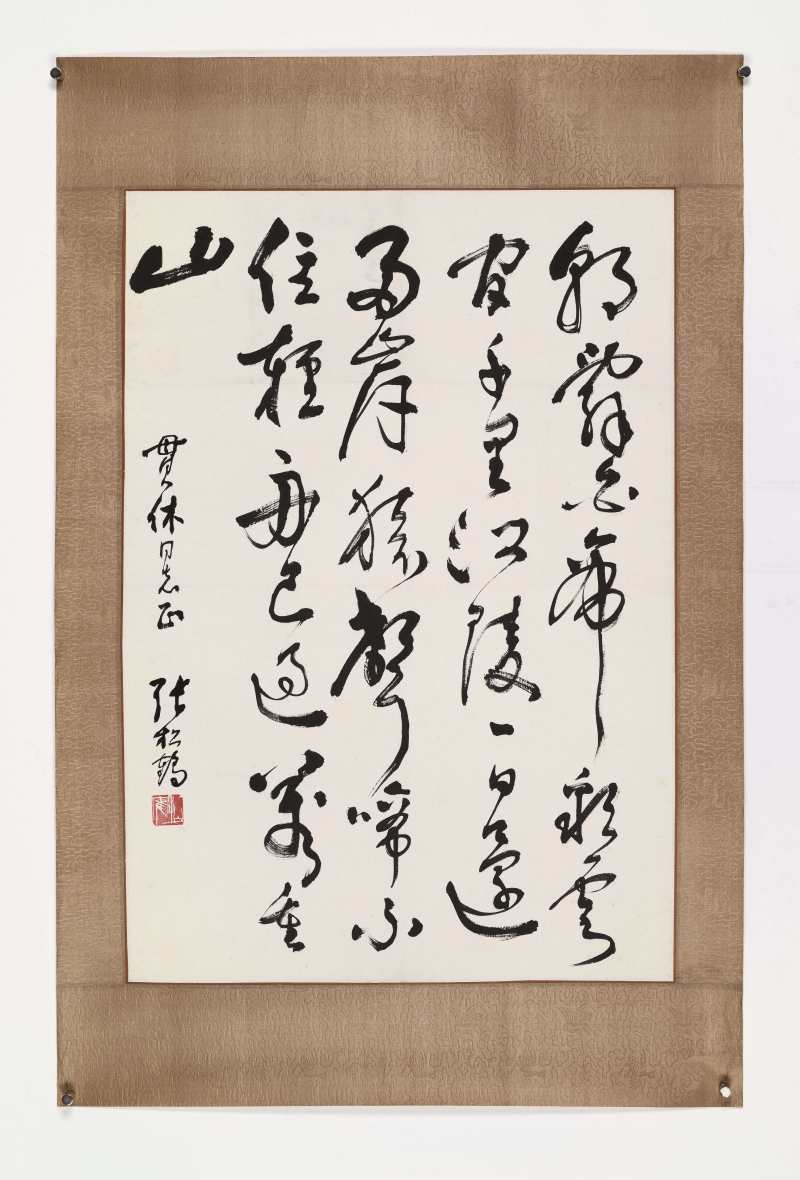 朝辭白帝彩雲
間千里江陵一日還
兩岸猿聲啼不
住輕舟已過萬重
山
貫休同志正
張松鶴